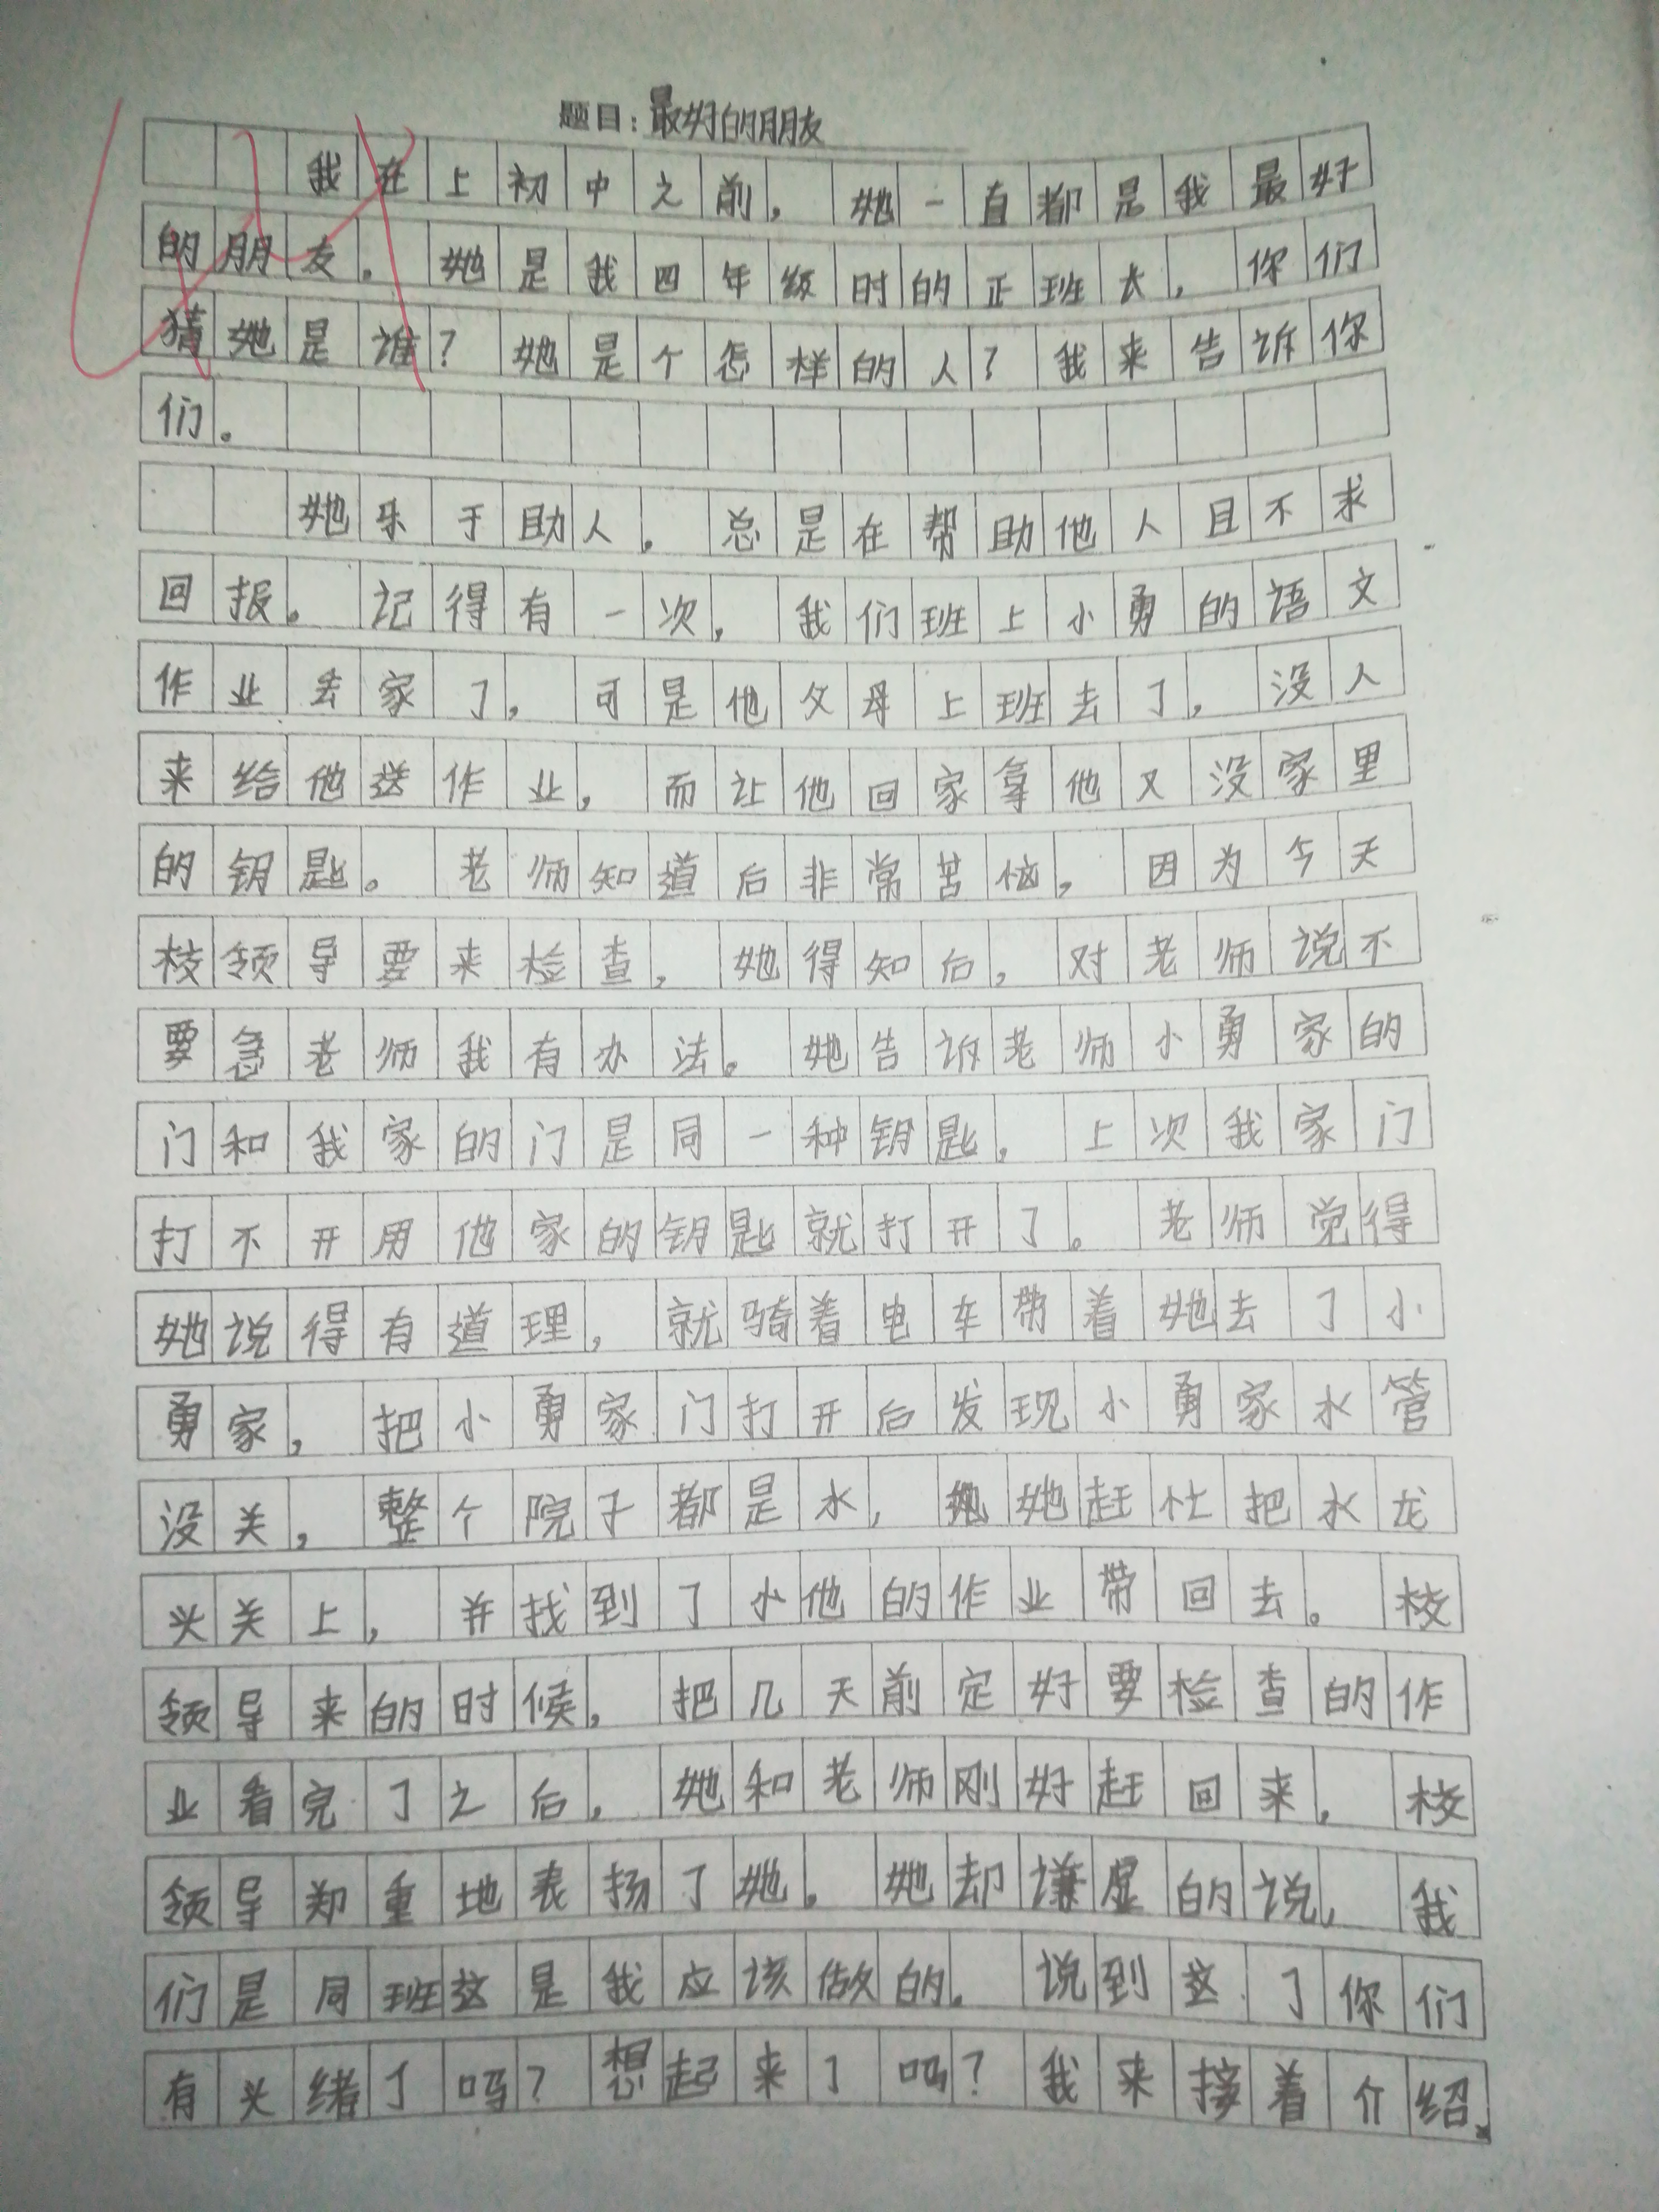 题目：最好的朋友
我在上初中之前，她一直都是我最好
的朋友。她是我四年级时的正班长，你们
猜她是谁？她是个怎样的人？我来告诉你
们。
她乐于助人。总是在帮助他人且不求
回报。记得有一次，我们班上小勇的语文
作业丢家了，可是他父母上班去了，没人
来给他送作业，而让他回家拿他又没家里
的钥匙。老师知道后非常苦恼，因为今天
校领导要来检查，她得知后，对老师说不
要急老师我有办法。她告诉老师小勇家的
门和我家的门是同一种钥匙，上次我家门
打不开用他家的钥匙就打开了。老师觉得
她说得有道理，就骑着电车带着她去了小
勇家，把小勇家门打开后发现小勇家水管
没关，整个院子都是水，她赶忙把水龙
头关上，并找到了小他的作业带回去。校
领导来的时候，把几天前定好要检查的作
业看完了之后，她和老师刚好赶回来，校
领导郑重地表扬了她。她却谦虚的说，我
们是同班这是我应该做的。说到这了你们
有头绪了吗？想起来了吗？我来接着介绍。